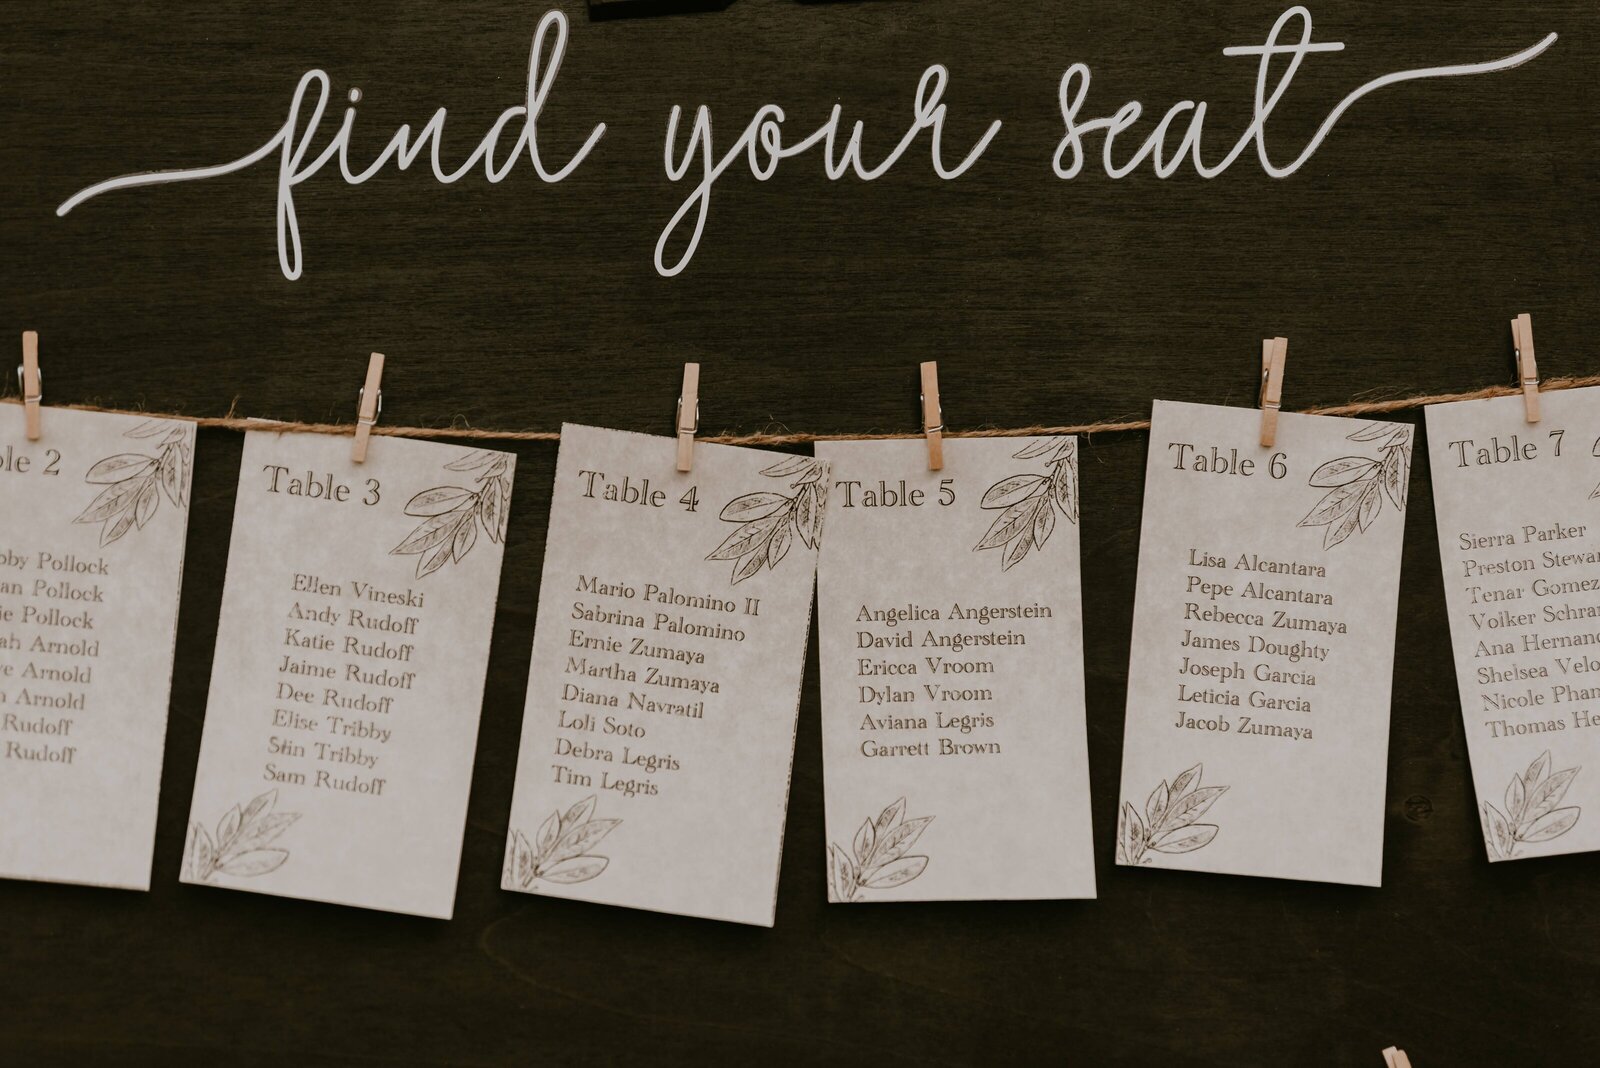 find your seat
2
Pollock
Pollock
Pollock
Arnold
Arnold
Arnold
Rudoff
Rudoff
Table 3
Ellen Vineski
Andy Rudoff
Katie Rudoff
Jaime Rudoff
Dee Rudoff
Elise Tribby
Tribby
Sam Rudoff
Table 4
Mario Palomino II
Sabrina Palomino
Ernie Zumaya
Martha Zumaya
Diana Navratil
Loli Soto
Debra Legris
Tim Legris
Table 5
Angelica Angerstein
David Angerstein
Ericca Vroom
Dylan Vroom
Aviana Legris
Garrett Brown
Table 6
Lisa Alcantara
Pepe Alcantara
Rebecca Zumaya
James Doughty
Joseph Garcia
Leticia Garcia
Jacob Zumaya
Table 7
Sierra Parker
Preston
Tenar Gomez
Volker
Ana
Shelsea
Nicole Pham
Thomas